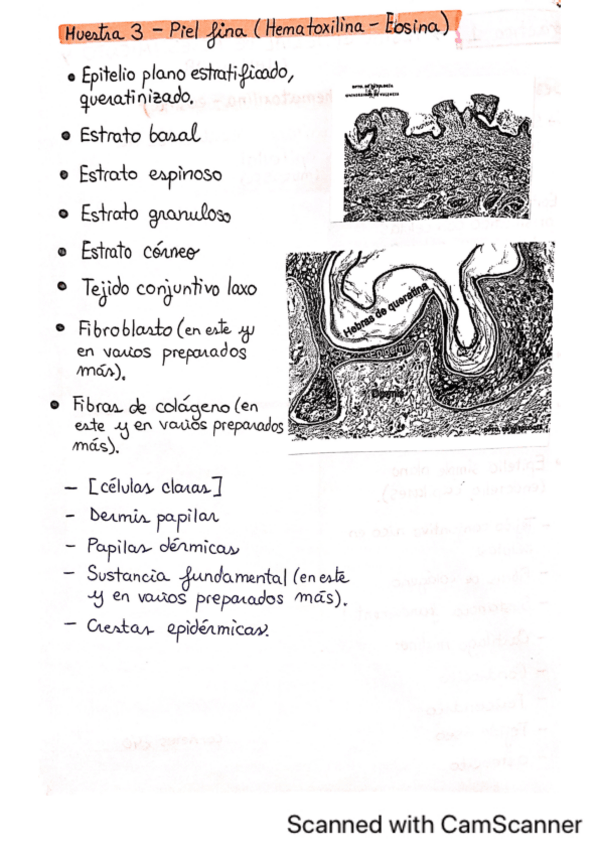 Muestra 3 - Piel fina (Hematoxilina - Eosina)
• Epitelio plano estratificado,
queratinizado.
• Estrato basal
• Estrato espinoso
• Estrato granuloso
• Estrato córneo
• Tejido conjuntivo laxo
• Fibroblasto (en este y
en varios preparados
más).
• Fibras de colágeno (en
este y en varios preparados
más).
- [células claras]
- Dermis papilar
- Papilas dérmicas
- Sustancia fundamental (en este
y en varios preparados más).
- Crestas epidérmicas.
Hebras de queratina
Dermis
Scanned with CamScanner